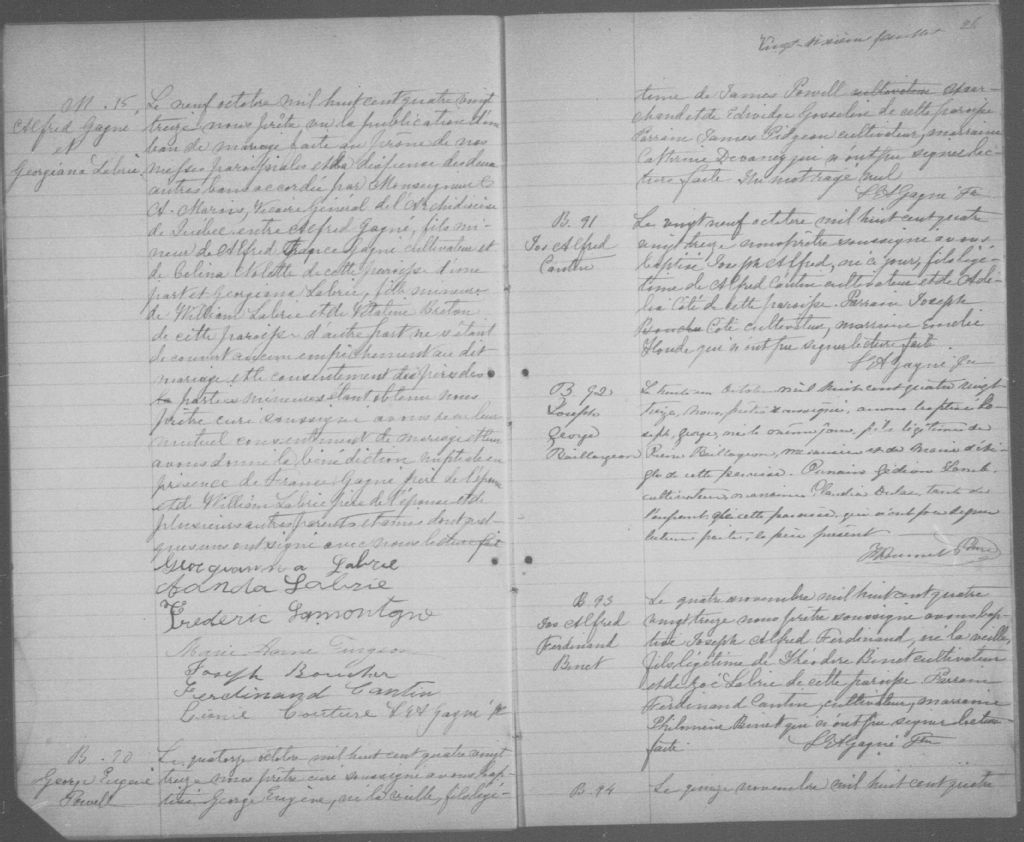 M. 15.
Alfred Gagné
et
Georgiana Labrie
Le neuf octobre mil huit cent quatre vingt
treize nous prêtre vu la publication d'un
ban de mariage faite au prône de nos
messes paroissiales et la dispense des deux
autres bans accordée par Monseigneur C
A. Marois, Vicaire Général de l'Archidiocèse
de Québec entre Alfred Gagné, fils mi-
neur de Alfred Gagné cultivateur et
de Celina Nolette de cette paroisse d'une
part et Georgiana Labrie, fille mineure
de William Labrie et de Vitaline Breton
de cette paroisse d'autre part ne s'étant
découvert aucun empêchement au dit
mariage et le consentement des pères des
parties mineures étant obtenu nous
prêtre curé soussigné avons reçu leur
mutuel consentement de mariage et leur
avons donné la bénédiction nuptiale en
présence de Gagné père de l'époux
et de William Labrie père de l'épouse et de
plusieurs autres parents et amis dont quel-
ques uns ont signé avec nous lecture faite
Georgianna Labrie
Labrie
Frederic Lamontgne
Marie
Joseph Boucher
Ferdinand Cantin
Couture L E A Gagné Ptre
B. 90
George Eugène
Powell
Le quatorze octobre mil huit cent quatre vingt
treize nous prêtre curé soussigné avons bap-
tisé George Eugène, né la veille, fils légi-
Vingt-sixième feuillet 26
time de James Powell cultivateur mar-
chand et de Edwidge Gosselin de cette paroisse
Parrain James Pidgeon cultivateur, marraine
Catherine Devaney qui n'ont pu signer lec-
ture faite. Un mot rayé nul
Gagné Ptre
B. 91
Jos Alfred
Cantin
Le vingt neuf octobre mil huit cent quatre
vingt treize nous prêtre soussigné avons
baptisé Joseph Alfred, né ce jour, fils légi-
time de Alfred Cantin cultivateur et de Adé-
lia Coté de cette paroisse. Parrain Joseph
Coté cultivateur, marraine Emelie
qui n'ont pu signer lecture faite.
Gagné Ptre
B 92
Joseph
George
Baillargeon
Le trente un octobre mil huit cent quatre vingt
treize, nous, prêtre soussigné, avons baptisé Jo-
seph, George, né le même jour, fils légitime de
Pierre Baillargeon, menuisier et de Marie
de cette paroisse. Parrain Gédéon
cultivateur, marraine Claudia Dulac, tante de
l'enfant de cette paroisse, qui n'ont pu signer
lecture faite, le père présent
Ptre
B 93
Jos Alfred
Ferdinand
Binet
Le quatre novembre mil huit cent quatre
vingt treize nous prêtre soussigné avons bap-
tisé Joseph Alfred Ferdinand, né la veille,
fils légitime de Théodore Binet cultivateur
et de Zoé Labrie de cette paroisse Parrain
Ferdinand Cantin, cultivateur, marraine
Philomène Binet qui n'ont pu signer lecture
faite. Gagné Ptre
B. 94
Le quinze novembre mil huit cent quatre